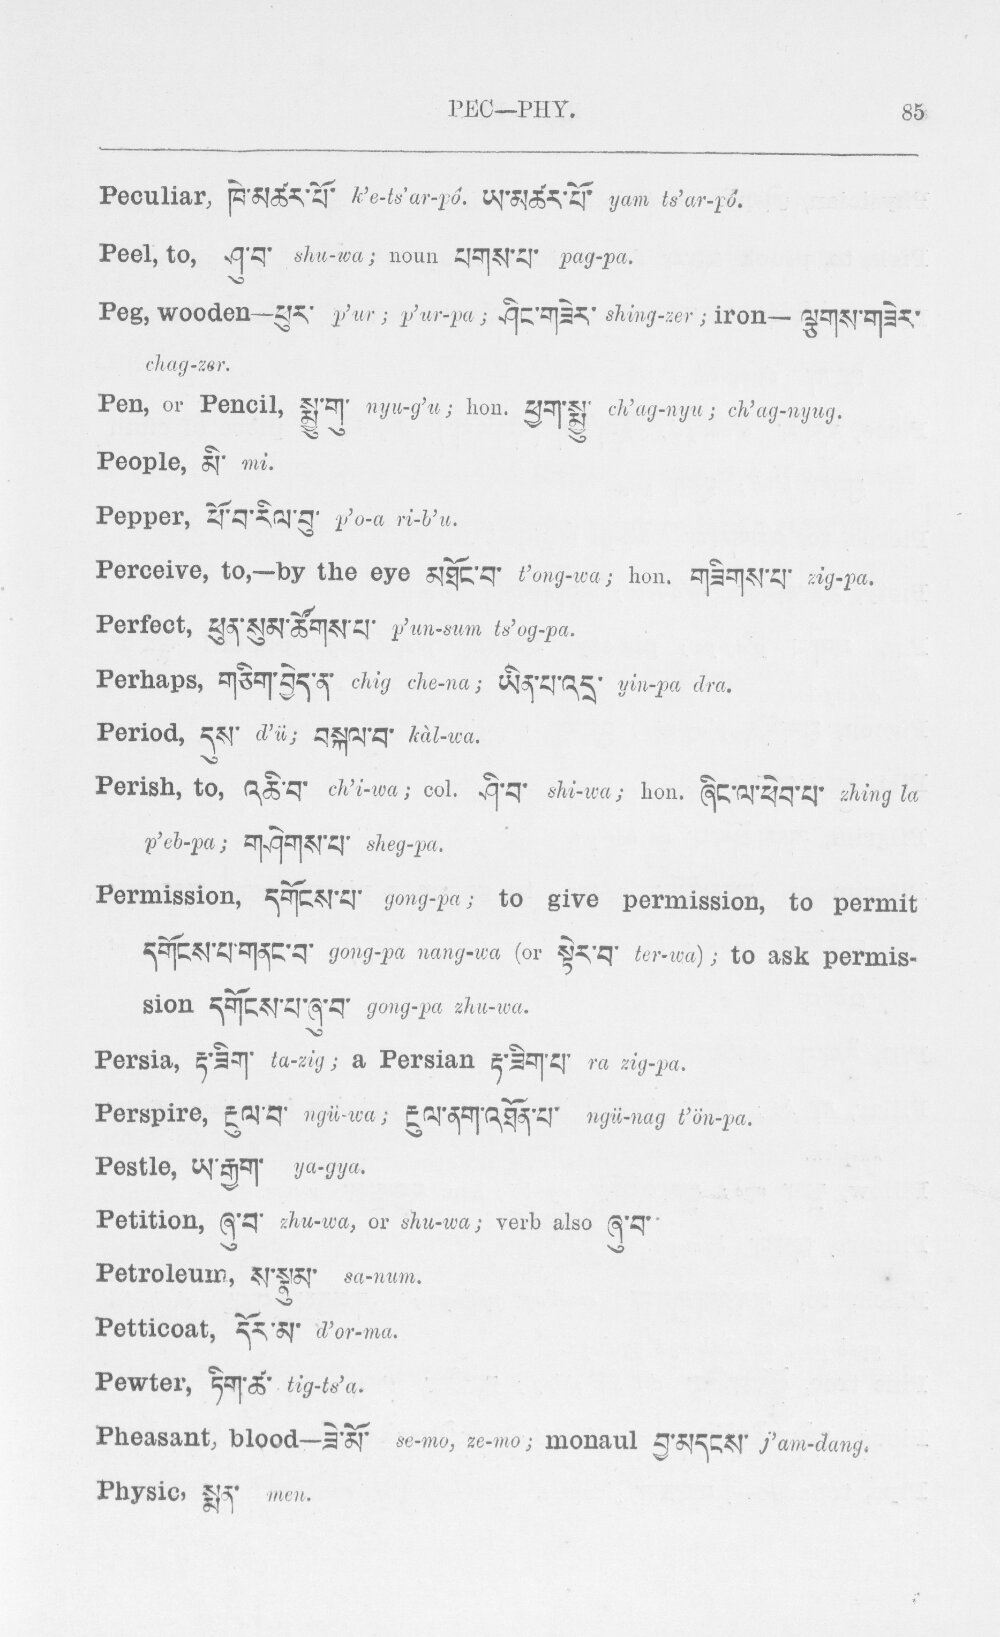 PEC—PHY. 85
Peculiar, ཁེ་མཚར་པོ་ k'e-ts'ar-pó. ཡ་མཚར་པོ་ yam ts'ar-pó.
Peel, to, ཤུ་བ་ shu-wa; noun པགས་པ་ pag-pa.
Peg, wooden—ཕུར་ p'ur; p'ur-pa; ཤིང་གཟེར་ shing-zer; iron— ལྕགས་གཟེར་
chag-zer.
Pen, or Pencil, སྨྱུ་གུ་ nyu-g'u; hon. ཕྱག་སྨྱུ་ ch'ag-nyu; ch'ag-nyug.
People, མི་ mi.
Pepper, ཕོ་བ་རིལ་བུ་ p'o-a ri-b'u.
Perceive, to,—by the eye མཐོང་བ་ t'ong-wa; hon. གཟིགས་པ་ zig-pa.
Perfect, ཕུན་སུམ་ཚོགས་པ་ p'un-sum ts'og-pa.
Perhaps, གཅིག་བྱེད་ན་ chig che-na; ཡིན་པ་འདྲ་ yin-pa dra.
Period, དུས་ d'ü; བསྐལ་བ་ kàl-wa.
Perish, to, འཆི་བ་ ch'i-wa; col. ཤི་བ་ shi-wa; hon. ཞིང་ལ་ཕེབ་པ་ zhing la
p'eb-pa; གཤེགས་པ་ sheg-pa.
Permission, དགོངས་པ་ gong-pa; to give permission, to permit
དགོངས་པ་གནང་བ་ gong-pa nang-wa (or སྟེར་བ་ ter-wa); to ask permis-
sion དགོངས་པ་ཞུ་བ་ gong-pa zhu-wa.
Persia, ཏ་ཟིག་ ta-zig; a Persian ཏ་ཟིག་པ་ ra zig-pa.
Perspire, རྔུལ་བ་ ngü-wa; རྔུལ་ནག་འཐོན་པ་ ngü-nag t'ön-pa.
Pestle, ཡ་རྒྱག་ ya-gya.
Petition, ཞུ་བ་ zhu-wa, or shu-wa; verb also ཞུ་བ་
Petroleum, ས་སྣུམ་ sa-num.
Petticoat, དོར་མ་ d'or-ma.
Pewter, ཏིག་ཚ་ tig-ts'a.
Pheasant, blood—ཟེ་མོ་ se-mo, ze-mo; monaul བྱ་མདངས་ j'am-dang.
Physic, སྨན་ men.